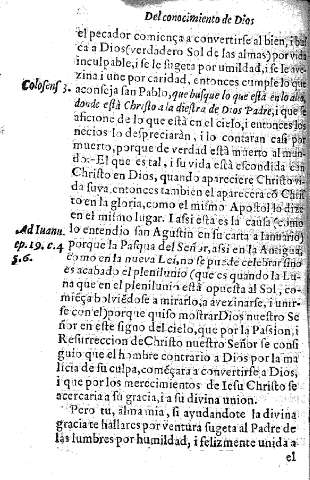 Del conocimiento de Dios
el pecador comiença a convertirse al bien, i busca
ca a Dios (verdadero Sol de las almas) por vida
inculpable, i se le sugeta por umildad, i se le ave
zina i une por caridad, entonces cumple lo que
Colosens 3.
aconseja san Pablo, que busque lo que està en lo alto,
donde està Christo a la diestra de Dios Padre, i que se
aficione de lo que està en el cielo, i entonces los
necios lo despreciaràn, i lo contaràn casi por
muerto, porque de verdad està muerto al mun
do: El que es tal, i su vida està escondida con
Christo en Dios, quando apareciere Christo vi
da suya, entonces tambien el aparecerà cõ Chris
to en la gloria, como el mismo Apostol lo dize
en el mismo lugar. I assi esta es la causa (como
Ad Ianu.
ep. 19. c. 4
§. 6.
lo entendio san Agustin en su carta a Ianuario)
porque la Pasqua del Señor, assi en la Antigua,
como en la nueva Lei, no se puede celebrar sino
es acabado el plenilunio (que es quando la Lu
na que en el plenilunio està opuesta al Sol, co-
miẽça bolviẽdose a mirarlo, a avezinarse, i unir-
se con el) porque quiso mostrar Dios nuestro Se
ñor en este signo del cielo, que por la Passion, i
Resurreccion de Christo nuestro Señor se consi
guio que el hombre contrario a Dios por la ma
licia de su culpa, començara a convertirse a Dios,
i que por los merecimientos de Iesu Christo se
acercaria a su gracia, i a su divina union.
Pero tu, alma mia, si ayudandote la divina
gracia te hallares por ventura sugeta al Padre de
las lumbres por humildad, i felizmente unida a
el